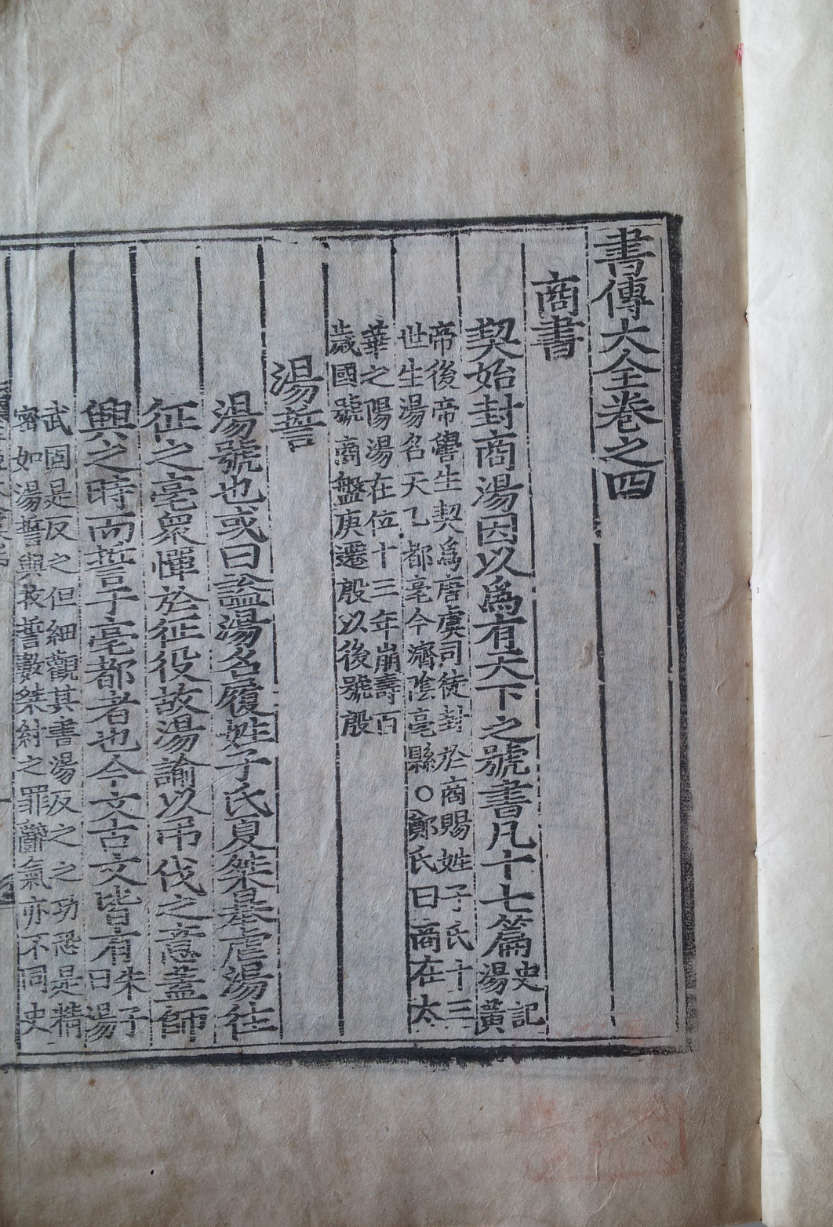 書傳大全卷之四
商書
契始封商湯因以爲有天下之號書凡十七篇
史記
湯黃
帝後帝嚳生契爲唐虞司徒封於商賜姓子氏十三
世生湯名天乙都亳今濟陰亳縣○鄭氏曰商在太
華之陽湯在位十三年崩壽百
歲國號商盤庚遷殷以後號殷
湯誓
湯號也或曰諡湯名履姓子氏夏桀暴虐湯往
征之亳衆憚於征役故湯諭以吊伐之意蓋師
興之時而誓于亳都者也今文古文皆有
朱子
曰湯
武固是反之但細觀其書湯反之之功恐是精
密如湯誓與牧誓數桀紂之罪辭氣亦不同史